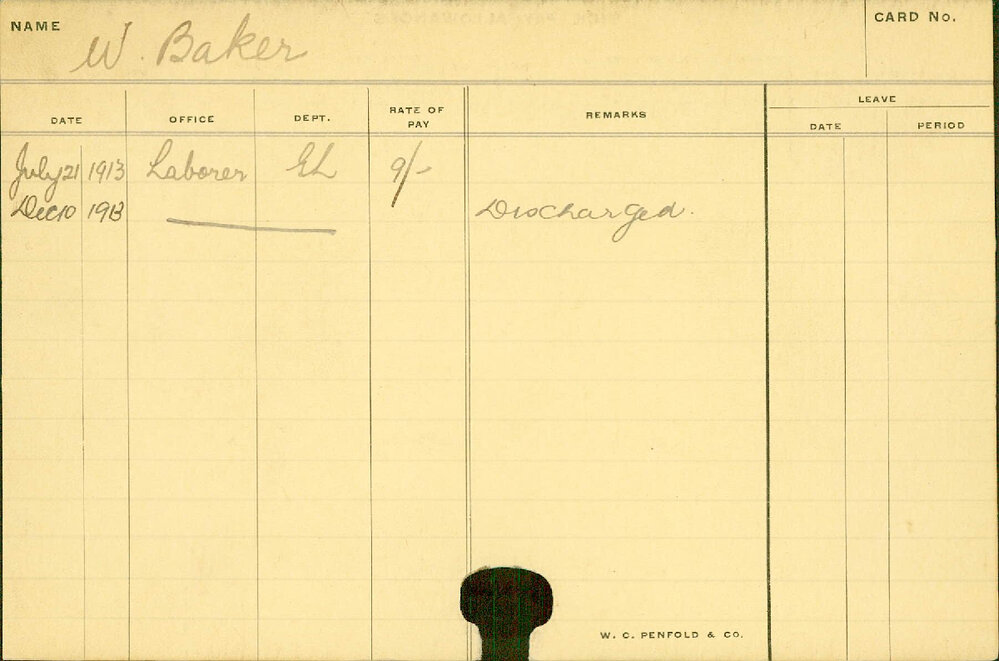 NAME W. Baker CARD No.
DATE OFFICE DEPT. RATE OF PAY REMARKS LEAVE
DATE PERIOD
July 21 1913 Laborer EL 9/-
Dec 10 1913 Discharged.
W. C. PENFOLD & CO.